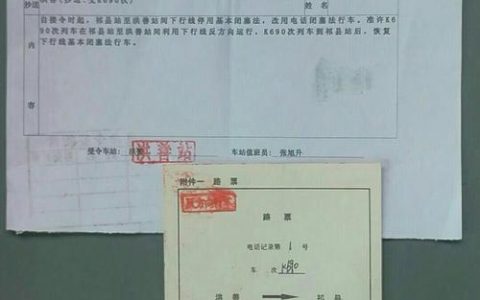 抄送
洪善（抄送：交K690次）
姓名
自接令时起，祁县站至洪善站间下行线停用基本闭塞法，改用电话闭塞法行车。准许K6
90次列车在祁县站至洪善站间利用下行线反方向运行，K690次列车到祁县站后，恢复
下行线基本闭塞法行车。
内
容
受令车站：洪善
车站值班员：张旭升
附件一 路票
路 票
电话记录第 1 号
车 次 K690
洪善 祁县